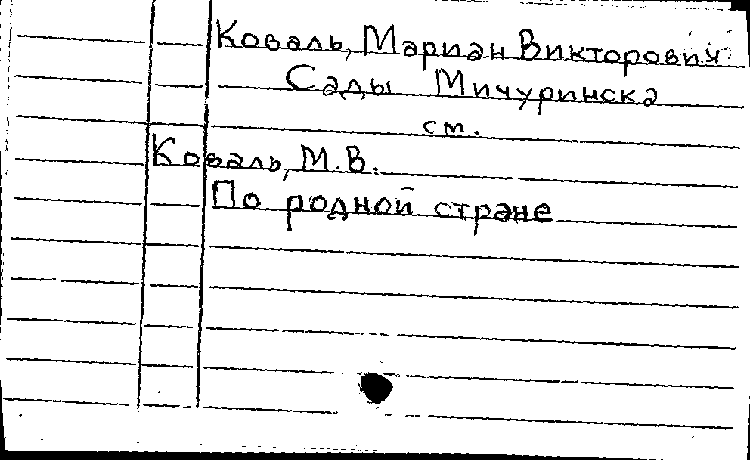 Коваль, Мариан Викторович
Сады Мичуринска
см.
Коваль, М.В.
По родной стране